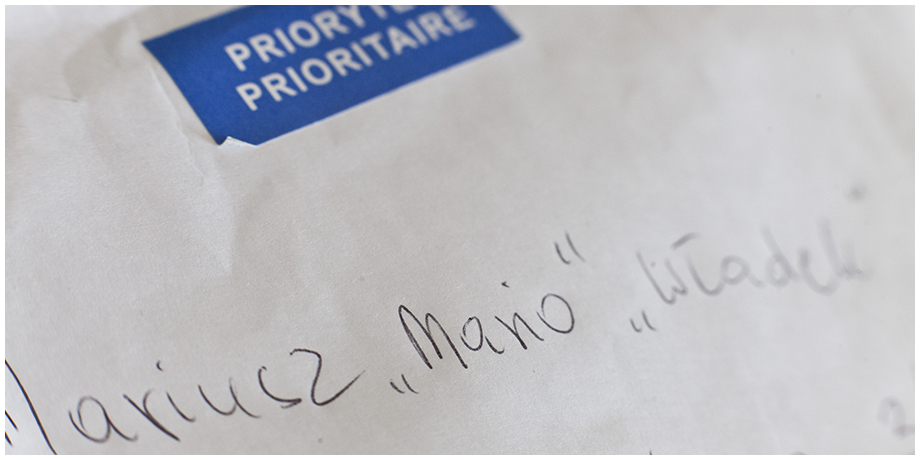 PRIORYTE
PRIORITAIRE
Mariusz „Mario” „Władek”